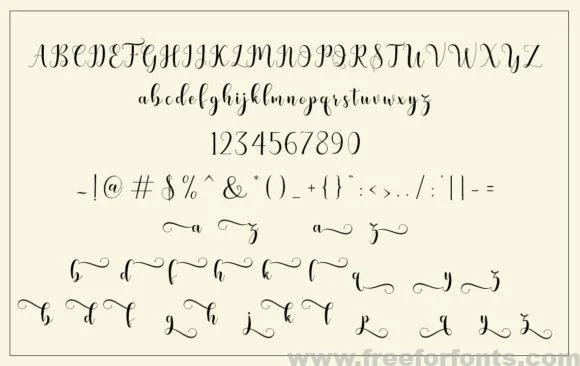 ABCDEFGHIJKLMNOPQRSTUVWXYZ
abcdefghijklmnopqrstuvwxyz
1234567890
~!@#$%^&*()_+{}":<>../;'||-=
a z a z
b d f h k l q y z
b d f g h j k l p q y z
www.freeforfonts.com